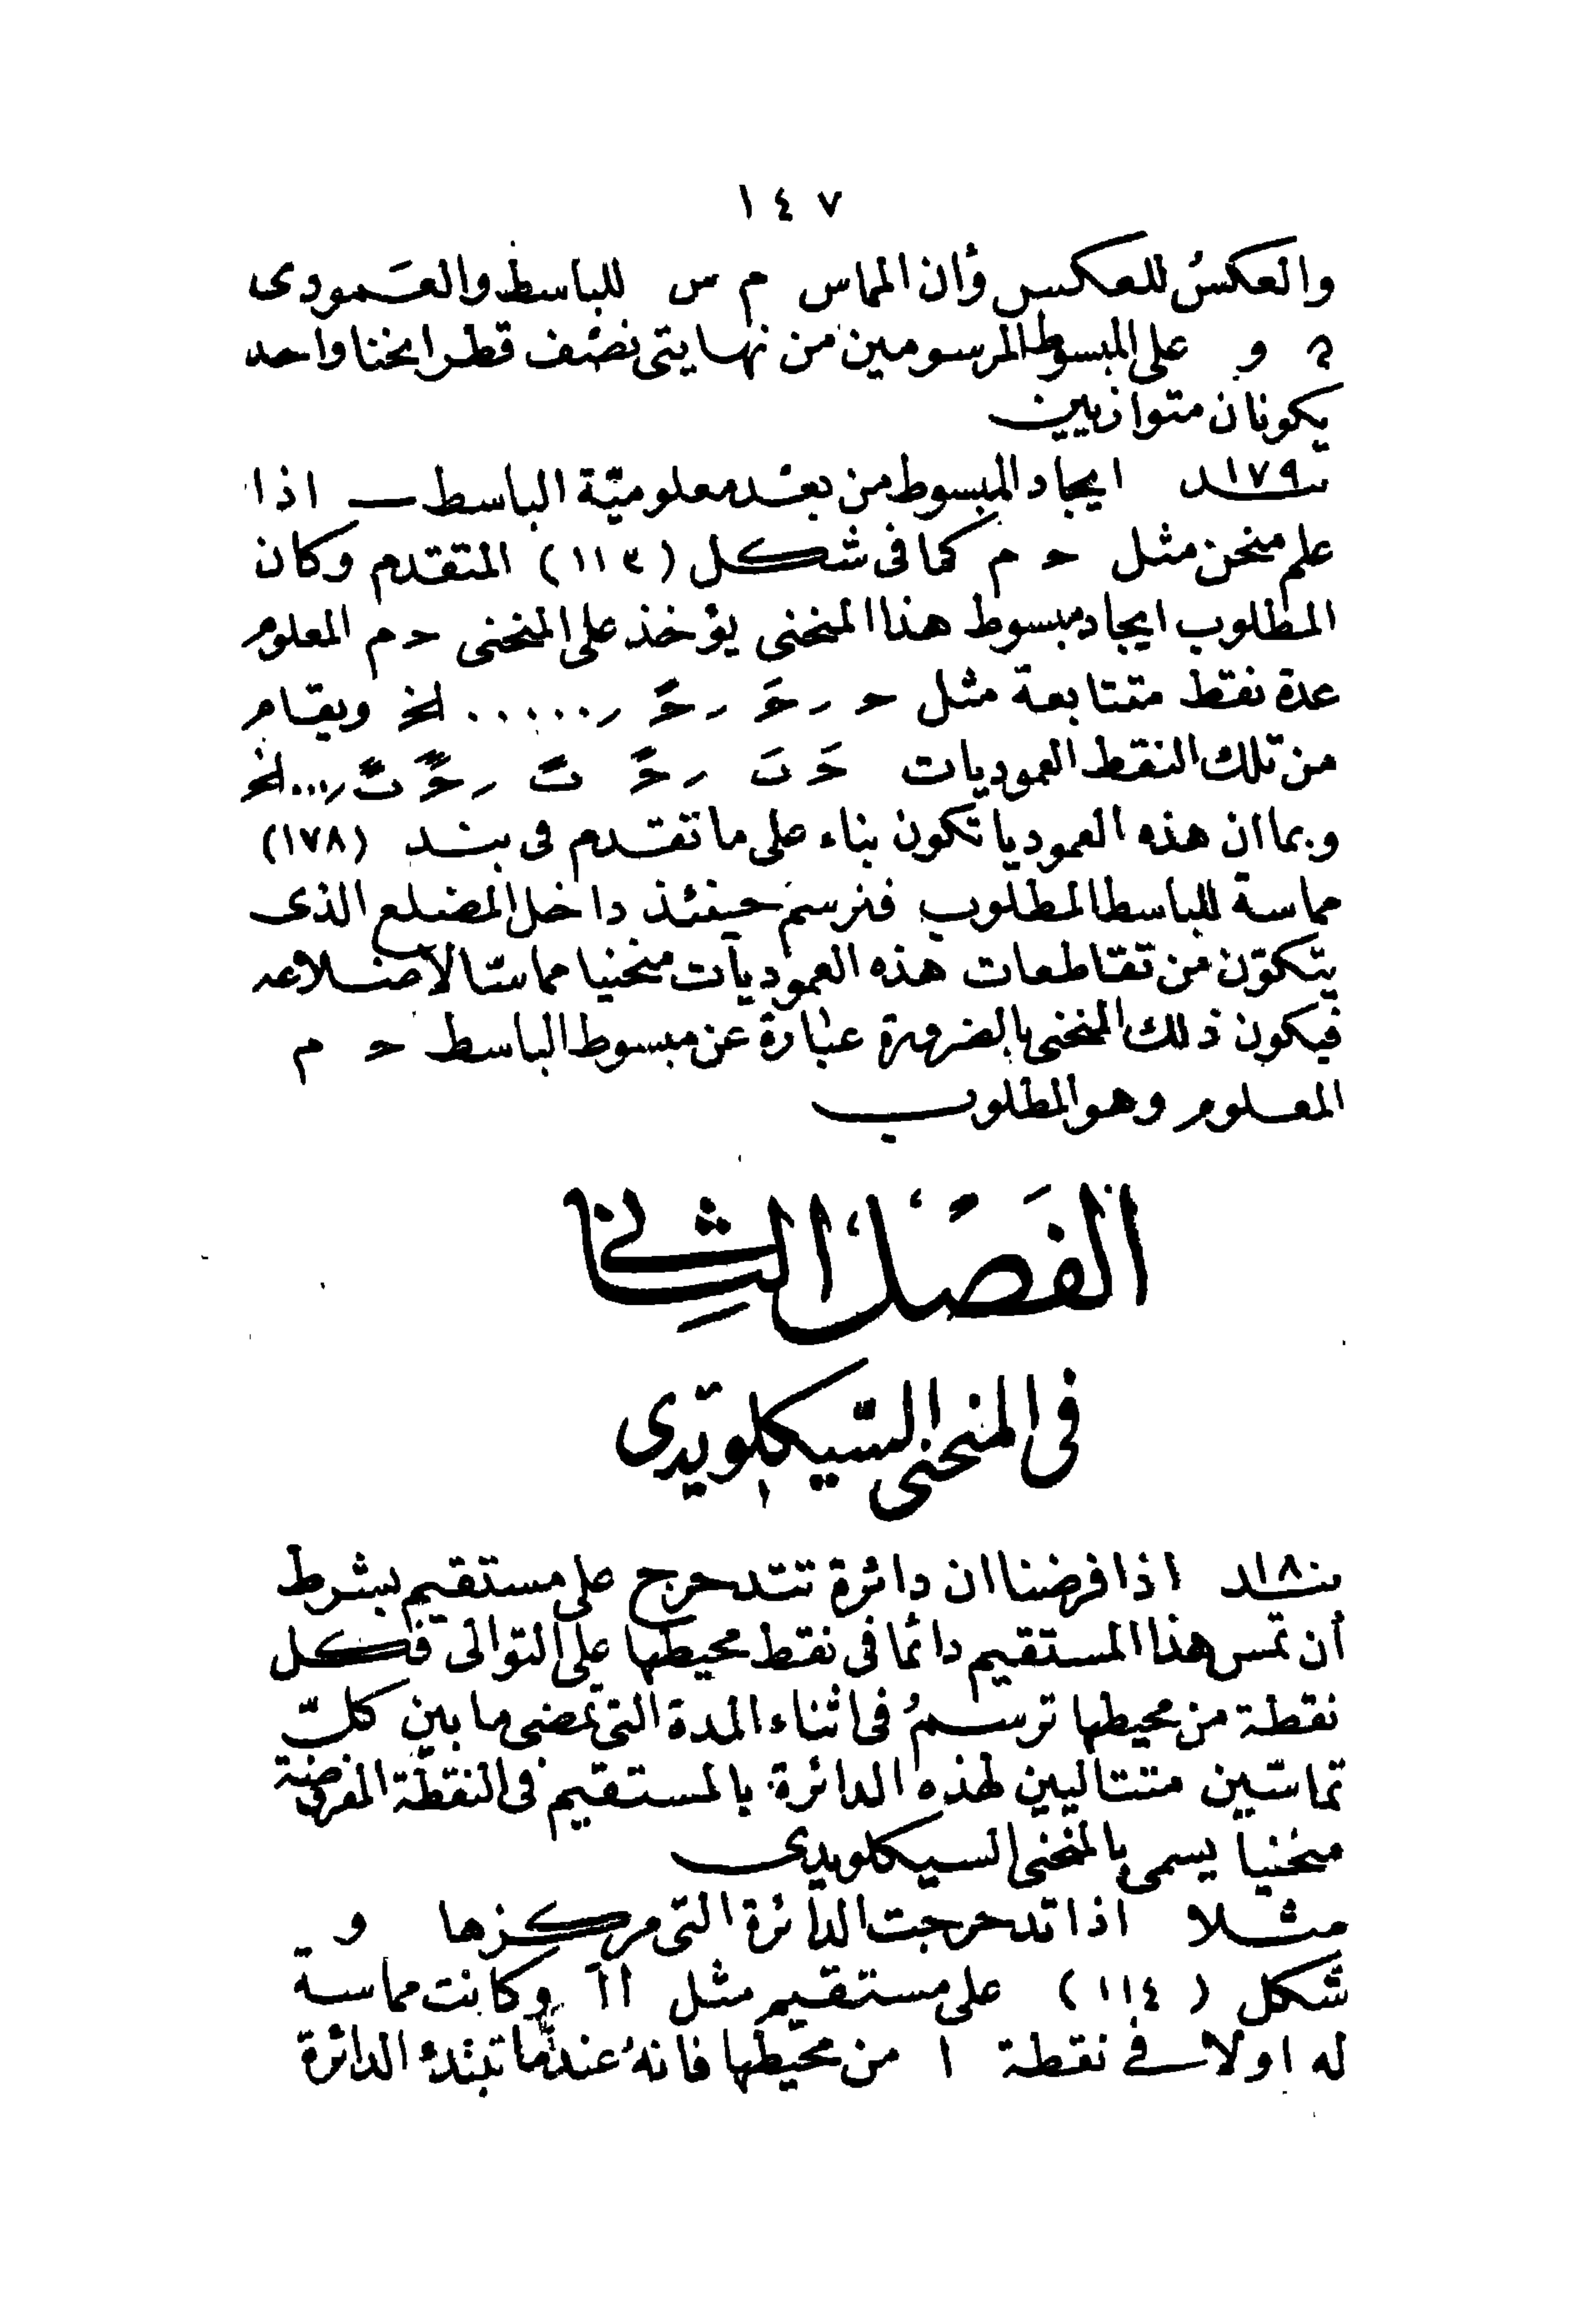 ١٤٧
والعكس للعكس وأن المماس م س للباسط والعمودى
و على المبسوط المرسومين من نهايتى نصف قطر انحنا واحد
يكونان متوازيين
بند ١٧٩ ايجاد المبسوط من بعد معلوميّة الباسط ــ اذا
علم منحن مثل ح م كما فى شكل (١١٣) المتقدم وكان
المطلوب ايجاد مبسوط هذا المنحنى يؤخذ على المنحنى ح م المعلوم
عدة نقط متتابعة مثل ح ر حَ ر حً ر ..... الخ ويقام
من تلك النقط العموديات حَ تَ ر حً تً ر حًَ تًَ ر ... الخ
وبما ان هذه العموديا تكون بناء على ما تقدم فى بند (١٧٨)
مماسة للباسط المطلوب فنرسم حينئذ داخل المضلع الذى
يتكوّن من تقاطعات هذه العموديات منحنيا مماسّا لأضلاعه
فيكون ذلك المنحنى بالضرورة عبارة عن مبسوط الباسط ح م
المعلوم وهو المطلوب
الفصل الثانى
فى المنحنى السّيكلويّدى
بند ١٨٠ اذا فرضنا ان دائرة تتدحرج على مستقيم بشرط
أن تمس هذا المستقيم دائما فى نقط محيطها على التوالى فكل
نقطة من محيطها ترسمُ فى اثناء المدة التى تمضى ما بين كلّ
تماسّين متتاليين لهذه الدائرة بالمستقيم فى النقطة المفروضة
منحنيا يسمى بالمنحنى السيكلويدى
مثلا اذا تدحرجت الدائرة التى مركزها و
شكل (١١٤) على مستقيم مثل اآ وكانت مماسة
له اولا فى نقطة ا من محيطها فانهُ عندما تبتدئ الدائرة